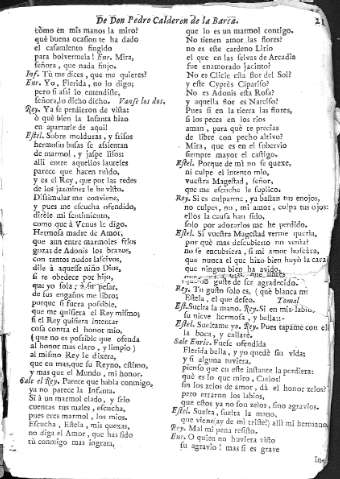 De Don Pedro Calderon de la Barca. 21
tomo en mis manos la miro?
què buena ocasion te ha dado
el casamiento fingido
para bolvermela! Eur. Mira,
señora, que nada finjo.
Inf. Tù me dices, que me quieres?
Eur. Yo, Florida, no lo digo;
pero si assi lo entendiste,
señora, lo dicho dicho. Vanse los dos.
Rey. Ya se perdieron de vista:
ò què bien la Infanta hizo
en apartarle de aqui!
Estel. Sobre molduras, y frisos
hermosas basas se assientan
de marmol, y jaspe lisos:
alli entre aquellos laureles
parece que hacen ruido,
y es el Rey, que por las redes
de los jazmines le he visto.
Dissimular me conviene,
y pues me escucha ofendido,
dirèle mi sentimiento,
como que à Venus le digo.
Hermosa madre de Amor,
que aun entre marmoles frios
gozas de Adonis los brazos,
con tantos nudos lascivos,
dile à aqueste niño Dios,
si te obedece por hijo,
que yo sola,
de sus engaños me libro;
porque si fuera possible,
que me quisiera el Rey mismo;
si el Rey quisiera intentar
cosa contra el honor mio,
(que no es possible que ofenda
al honor mas claro, y limpio)
al mismo Rey le dixera,
que en mas, que su Reyno, estimo,
y mas que el Mundo, mi honor.
Sale el Rey. Parece que habla conmigo,
ya no parece la Infanta.
Si à un marmol elado, y solo
cuentas tus males, escucha,
pues eres marmol, los mios.
Escucha, Estela, mis quexas,
no diga el Amor, que has sido
tù conmigo mas ingrata,
que lo es un marmol contigo.
No tienen amor las flores?
no es este cardeno Lirio
el que en las selvas de Arcadia
fue enamorado Jacinto?
No es Clicie esta flor del Sol?
y este Cyprès Ciparisso?
No es Adonis esta Rosa?
y aquella flor es Narciso?
Pues si en la tierra las flores,
si los peces en los rios
aman, para què te precias
de libre con pecho altivo?
Mira, que es en el sobervio
siempre mayor el castigo.
Estel. Porque de mi no se quexe,
ni culpe el intento mio,
vuestra Magestad, señor,
que me escuche le suplico.
Rey. Si es culparme, ya bastan tus enojos,
no culpes, no, mi amor, culpa tus ojos:
ellos la causa han sido,
solo por adorarlos me he perdido.
Estel. Si vuestra Magestad verme queria,
por què mas descubierto no venia?
no se encubriera, si mi amor buscàra,
que nunca el que hizo bien huyò la cara,
que ninguno bien ha avido,
guste de ser agradecido.
Rey. Tu gusto solo es, (què blanca mi
Estela, el que deseo. Toma
Est. Suelta la mano. Rey. Si en mis labios,
su nieve hermosa, y bella
Estel. Sueltame ya. Rey. Pues tapame con ella
la boca, y callarè.
Sale Euric. Fuese ofendida
Florida bella, y yo quedè sin vida:
y si alguna tuviera,
pienso que en este instante la perdiera:
què es lo que miro, Cielos!
sin los zelos de amor, dà el honor zelos?
pero erraron los labios,
que estos ya no son zelos, sino agravios.
Estel. Suelta, suelta la mano,
que viene (ay de mi triste!) alli mi hermano.
Rey. Mal mi pena resisto.
Eur. O quien no huviera visto
su agravio! mas si es grave